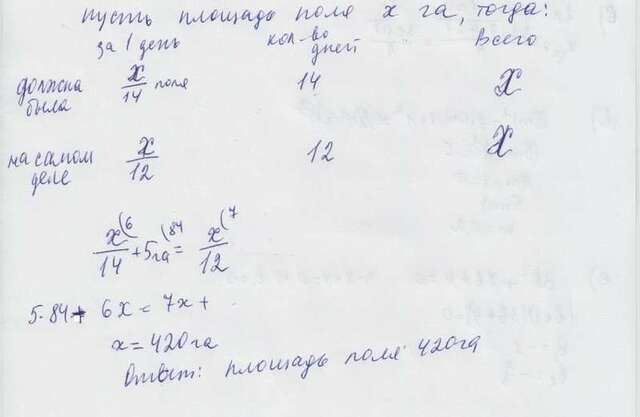 Пусть площадь поля х га, тогда:
за 1 день кол-во дней Всего
должна была х/14 поля 14 х
на самом деле х/12 12 х
х(6/14 + 5га(84 = х(7/12
5·84 + 6х = 7х +
х = 420га
Ответ: площадь поля 420га